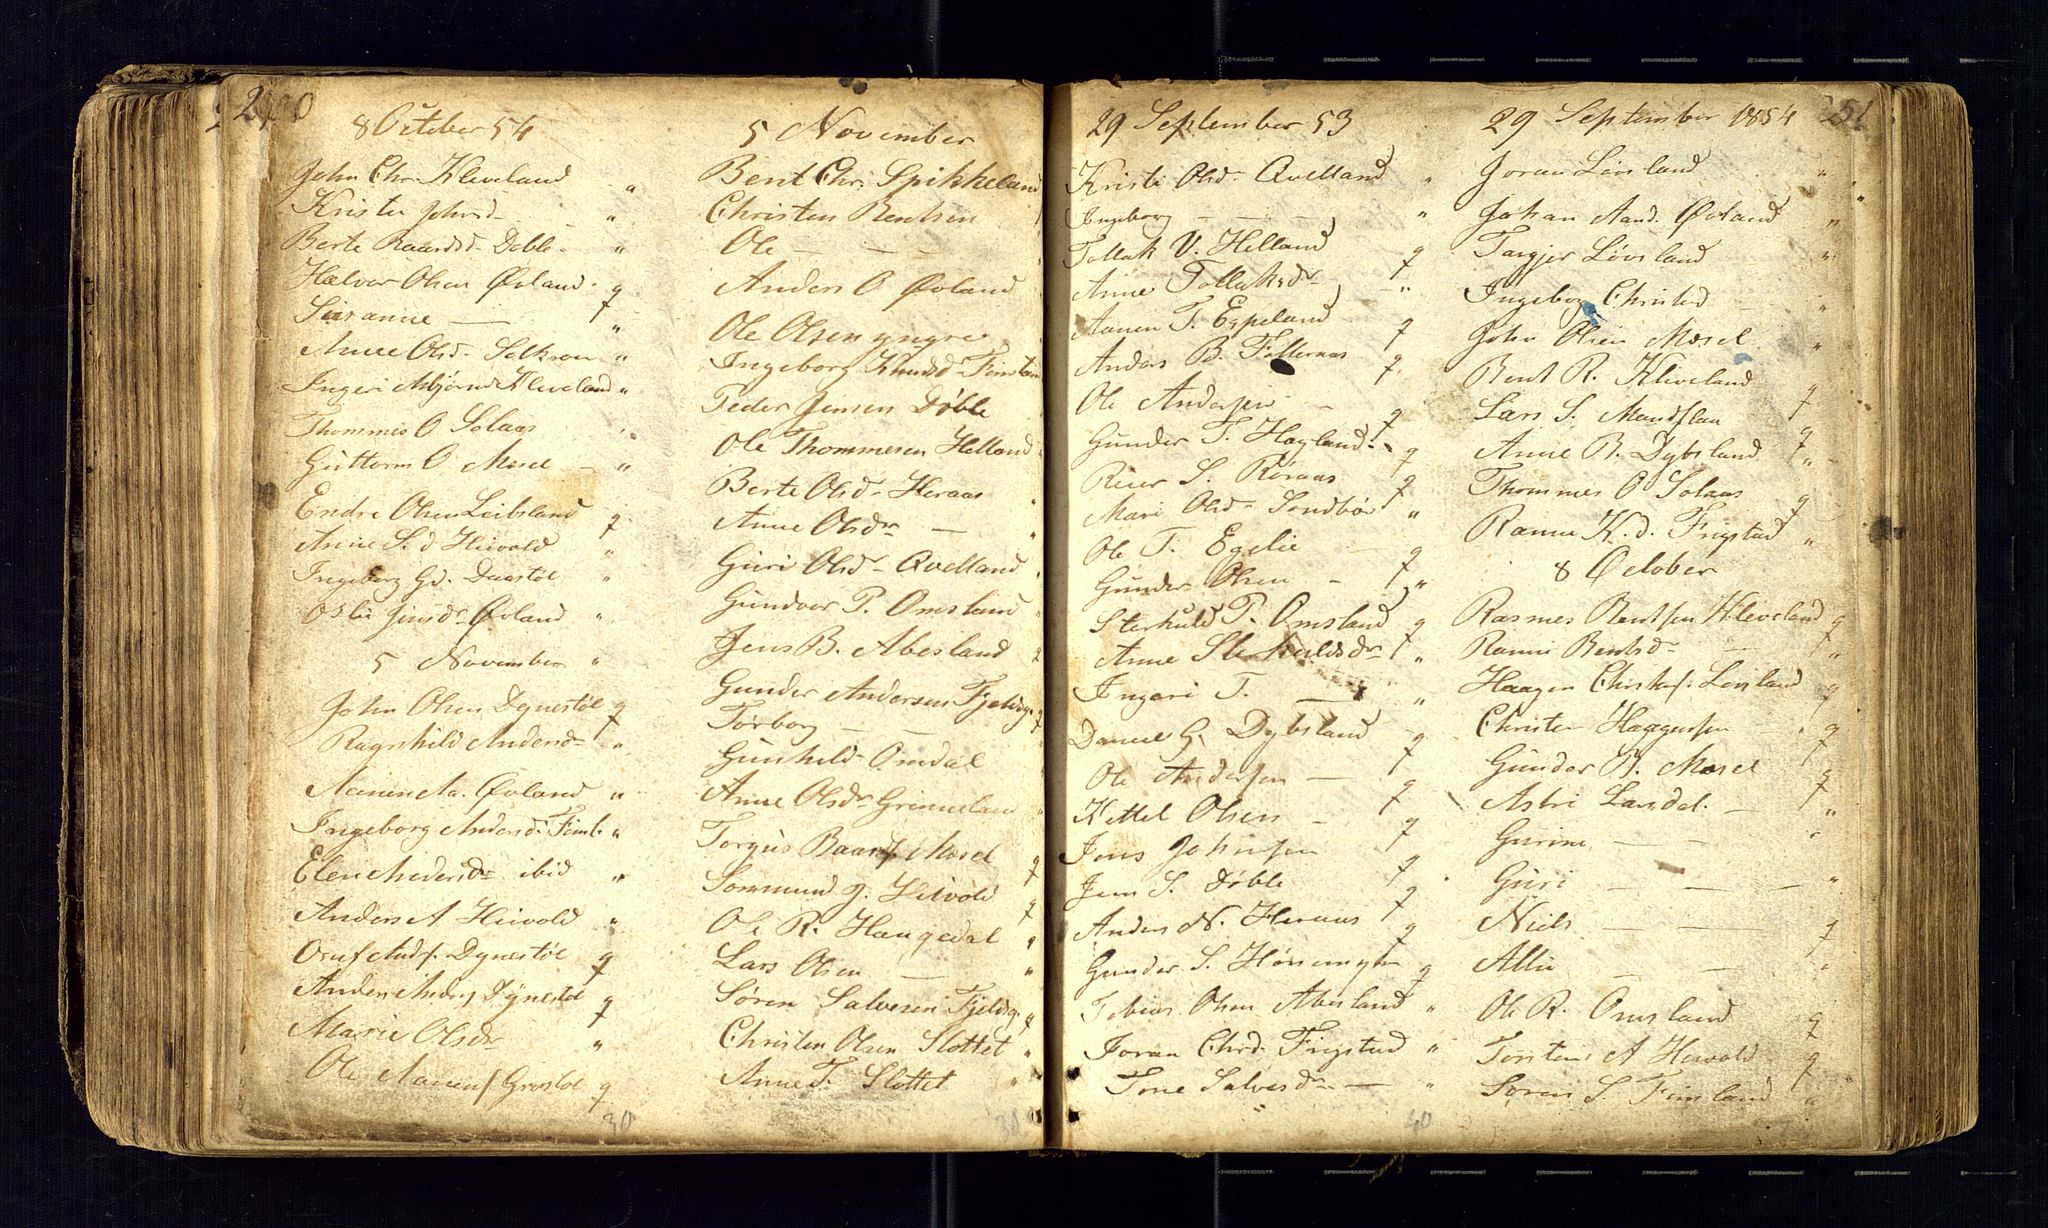 8 October 54
John Chr. Kleveland "
Kristi Johnsd "
Berte Baardsd- Døble "
Halvor Olsen Øvland q
Susanne — "
Anne Olsd- "
Ingeri Asbjørnsd Kleveland "
Thommes O Solaas
Guttorm O Mosel — "
Endre Olsen Leibsland q
Anne S. d Heivold "
Ingeborg Gd. "
Jensdr Øvland "
5 November "
John Olsen Dynestøl q
Ragnhild Andersd- "
Aa. Øvland "
Ingeborg Andersd. Finsl. "
Elen Andersdr ibid "
Anders A Heivold "
Andr. Dynestøl q
Anders Andr. Dynestøl q
Marie Olsdr "
Ole Aanens. Grostøl q
30
5 November
Bent Chr. Spikkeland
Christen Bentsen
Ole — — —
Anders O Øvland
Ole Olsen yngre
Ingeborg Knudsd- Finsland
Peder Jensen Døble
Ole Thommesen Helland
Berte Olsd- Heraas
Anne Olsdr —
Guri Olsd- Qvelland
Gundvor P. Omsland
Jens B. Abesland q
Gunder Andersen Fjeldsg. q
Tørborg — —
Gunhild Omdal
Anne Olsdr Grimmeland
Torgus Baards. Mosel q
Sommund G. Heivold q
Ole R. Haugedal "
Lars Olsen — "
Søren Salvesen Fjeldsg. q
Christen Olsen Slottet "
Anne T. Slottet "
30
29 September 53
Kristi Olsd- Qvelland "
Ingeborg — — "
Tollak V. Helland q
Anne Tollaksdr — "
Aanen T. Espeland q
Anders B. Follernas q
Ole Andersen — q
Gunder T. Høyland q
Reier S. Røraas q
Mari Olsd- Sandbør "
Ole T. Egelie — q
Gunder Olsen — "
Sterkuld P. Omsland q
Anne Sterkuldsdr "
Ingari T. — "
Daniel G. Dybsland q
Ole Andersen — q
Kettel Olsen — q
Jens Johnsen q
Jens S. Døble q
Anders N. Heraas q
Gunder S. Hønemyhr q
Tobias Olsen Abesland "
Joran Chrd. Frigstad "
Tone Salvesdr — "
40
29 September 1854 251
Joran Løvsland "
Johan Aand. Øvland "
Targjer Løvsland "
Ingeborg Christd "
John Olsen Mosel "
Bent R. Kleveland q
Lars S. q
Anne B. Dybsland "
Thommes O Solaas q
Ranni K. d. Frigstad "
8 October
Rasmus Bentsen Kleveland q
Ranni Bentsd- — "
Haagen Christens. Løvsland q
Christen Haagensen q
Gunder B. Mosel q
Astri Larsd. — "
Gurine — — "
Guri — — — "
Niels — — — q
— — "
Ole R. Omsland q
Torsten A Heivold q
Søren S. Finsland "